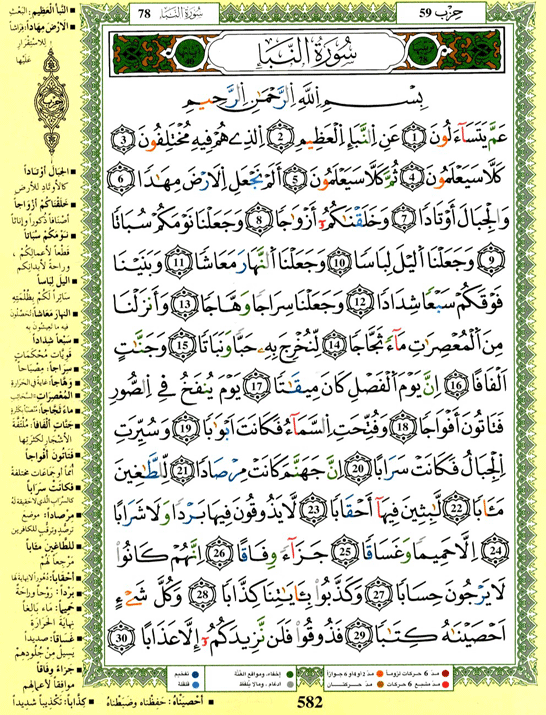 حِزْب 59
سُورَةُ النَّبَإ 78
سُورَةُ النَّبَإِ
بِسْمِ اللَّهِ الرَّحْمَٰنِ الرَّحِيمِ
عَمَّ يَتَسَاءَلُونَ 1 عَنِ النَّبَإِ الْعَظِيمِ 2 الَّذِي هُمْ فِيهِ مُخْتَلِفُونَ 3
كَلَّا سَيَعْلَمُونَ 4 ثُمَّ كَلَّا سَيَعْلَمُونَ 5 أَلَمْ نَجْعَلِ الْأَرْضَ مِهَٰدًا 6
وَالْجِبَالَ أَوْتَادًا 7 وَخَلَقْنَٰكُمْ أَزْوَٰجًا 8 وَجَعَلْنَا نَوْمَكُمْ سُبَاتًا
9 وَجَعَلْنَا الَّيْلَ لِبَاسًا 10 وَجَعَلْنَا النَّهَارَ مَعَاشًا 11 وَبَنَيْنَا
فَوْقَكُمْ سَبْعًا شِدَادًا 12 وَجَعَلْنَا سِرَاجًا وَهَّاجًا 13 وَأَنزَلْنَا
مِنَ الْمُعْصِرَٰتِ مَاءً ثَجَّاجًا 14 لِّنُخْرِجَ بِهِ حَبًّا وَنَبَاتًا 15 وَجَنَّٰتٍ
أَلْفَافًا 16 إِنَّ يَوْمَ الْفَصْلِ كَانَ مِيقَٰتًا 17 يَوْمَ يُنفَخُ فِي الصُّورِ
فَتَأْتُونَ أَفْوَاجًا 18 وَفُتِحَتِ السَّمَاءُ فَكَانَتْ أَبْوَٰبًا 19 وَسُيِّرَتِ
الْجِبَالُ فَكَانَتْ سَرَابًا 20 إِنَّ جَهَنَّمَ كَانَتْ مِرْصَادًا 21 لِّلطَّٰغِينَ
مَـَٔابًا 22 لَّٰبِثِينَ فِيهَا أَحْقَابًا 23 لَّا يَذُوقُونَ فِيهَا بَرْدًا وَلَا شَرَابًا
24 إِلَّا حَمِيمًا وَغَسَّاقًا 25 جَزَاءً وِفَاقًا 26 إِنَّهُمْ كَانُوا
لَا يَرْجُونَ حِسَابًا 27 وَكَذَّبُوا بِـَٔايَٰتِنَا كِذَّابًا 28 وَكُلَّ شَيْءٍ
أَحْصَيْنَٰهُ كِتَٰبًا 29 فَذُوقُوا فَلَن نَّزِيدَكُمْ إِلَّا عَذَابًا 30
■ النَّبَإِ الْعَظِيمِ: الْبَعْث
■ الْأَرْضَ مِهَاداً: فِرَاشاً
لِلِاسْتِقْرَارِ
عَلَيْهَا
حِزْب
■ الْجِبَالَ أَوْتَاداً
كَالْأَوْتَادِ لِلْأَرْضِ
■ خَلَقْنَاكُمْ أَزْوَاجاً
أَصْنَافاً ذُكُوراً وَإِنَاثاً
■ نَوْمَكُمْ سُبَاتاً
قَطْعاً لِأَعْمَالِكُمْ،
وَرَاحَةً لِأَبْدَانِكُمْ
■ اللَّيْلَ لِبَاساً
سَاتِراً لَكُمْ بِظُلْمَتِهِ
■ النَّهَارَ مَعَاشاً: تُحَصِّلُونَ
فِيهِ مَا تَعِيشُونَ بِهِ
■ سَبْعاً شِدَاداً
قَوِيَّاتٍ مُحْكَمَاتٍ
■ سِرَاجاً: مِصْبَاحاً
■ وَهَّاجاً: غَايَةً فِي الْحَرَارَةِ
■ الْمُعْصِرَاتِ: السَّحَائِبِ
■ مَاءً ثَجَّاجاً: مُنْصَبّاً بِكَثْرَةٍ
■ جَنَّاتٍ أَلْفَافاً: مُلْتَفَّةَ
الْأَشْجَارِ لِكَثْرَتِهَا
■ فَتَأْتُونَ أَفْوَاجاً
أُمَماً أَوْ جَمَاعَاتٍ مُخْتَلِفَةً
■ فَكَانَتْ سَرَاباً
كَالسَّرَابِ الَّذِي لَا حَقِيقَةَ لَهُ
■ مِرْصَاداً: مَوْضِعَ
تَرَصُّدٍ وَتَرَقُّبٍ لِلْكَافِرِينَ
■ لِلطَّاغِينَ مَآباً
مَرْجِعاً لَهُمْ
■ أَحْقَاباً: دُهُوراً لَا نِهَايَةَ لَهَا
■ بَرْداً: رَوْحاً وَرَاحَةً
■ حَمِيماً: مَاءً بَالِغاً
نِهَايَةَ الْحَرَارَةِ
■ غَسَّاقاً: صَدِيداً
يَسِيلُ مِنْ جُلُودِهِمْ
■ جَزَاءً وِفَاقاً
مُوَافِقاً لِأَعْمَالِهِمْ
■ كِذَّاباً: تَكْذِيباً شَدِيداً
■ أَحْصَيْنَاهُ: حَفِظْنَاهُ وَضَبَطْنَاهُ
مدّ 6 حركات لزوماً
مدّ 2 أو 4 أو 6 جوازاً
إخفاء، ومواقع الغُنَّة
تفخيم
مدّ مشبع 6 حركات
مدّ حركتان
ادغام، وما لا يُلفظ
قلقلة
582